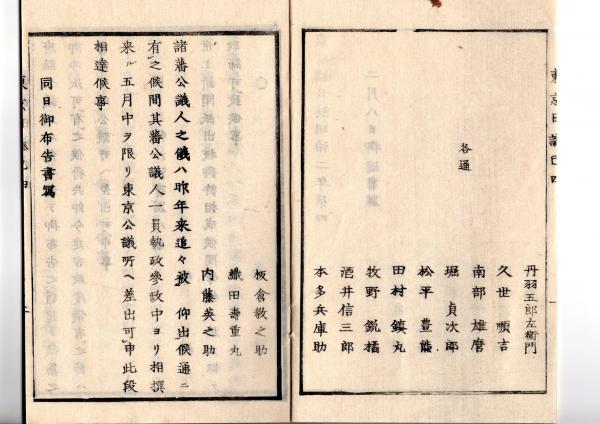 東京日誌巳四
各通
丹羽五郎左衛門
久世順吉
南部雄麿
堀貞次郎
松平豊熊
田村鎮丸
牧野鋭橘
酒井信三郎
本多兵庫助
板倉教之助
織田壽重丸
内藤英之助
諸藩公議人之儀ハ昨年来追々被 仰出候通ニ
有之候間其藩公議人一員執政参政中ヨリ相撰
来ル五月中ヲ限リ東京公議所ヘ差出可申此段
相達候事
同日御布告書寫